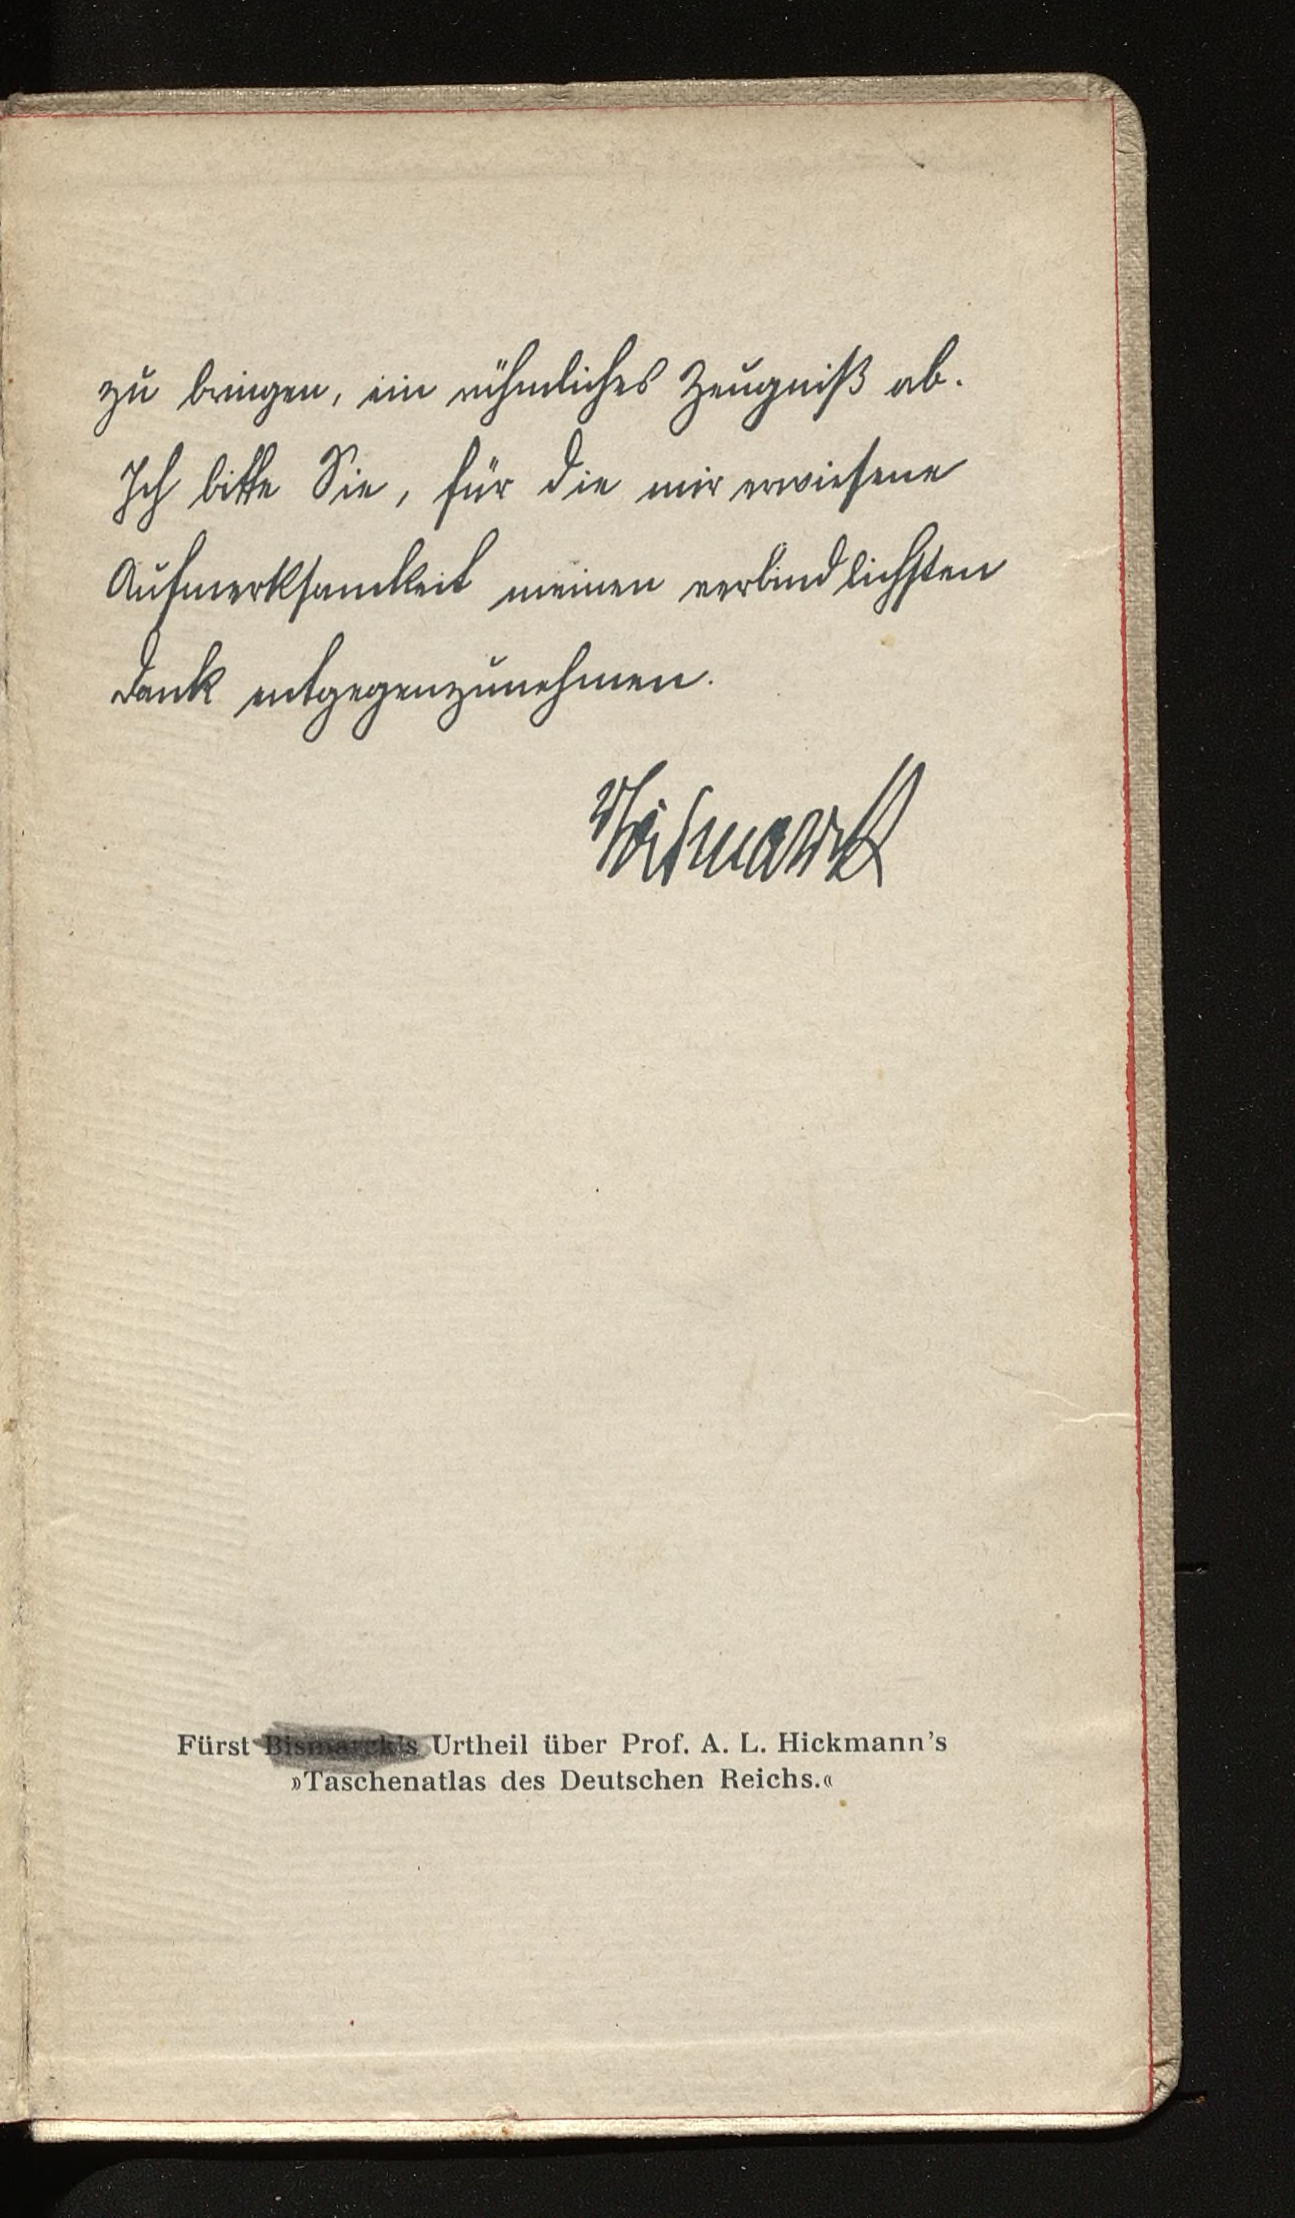 zu bringen, ein rühmliches Zeugniß ab.
Ich bitte Sie, für die mir erwiesene
Aufmerksamkeit meinen verbindlichsten
Dank entgegenzunehmen.
vBismarck
Fürst Bismarck's Urtheil über Prof. A. L. Hickmann's
»Taschenatlas des Deutschen Reichs.«